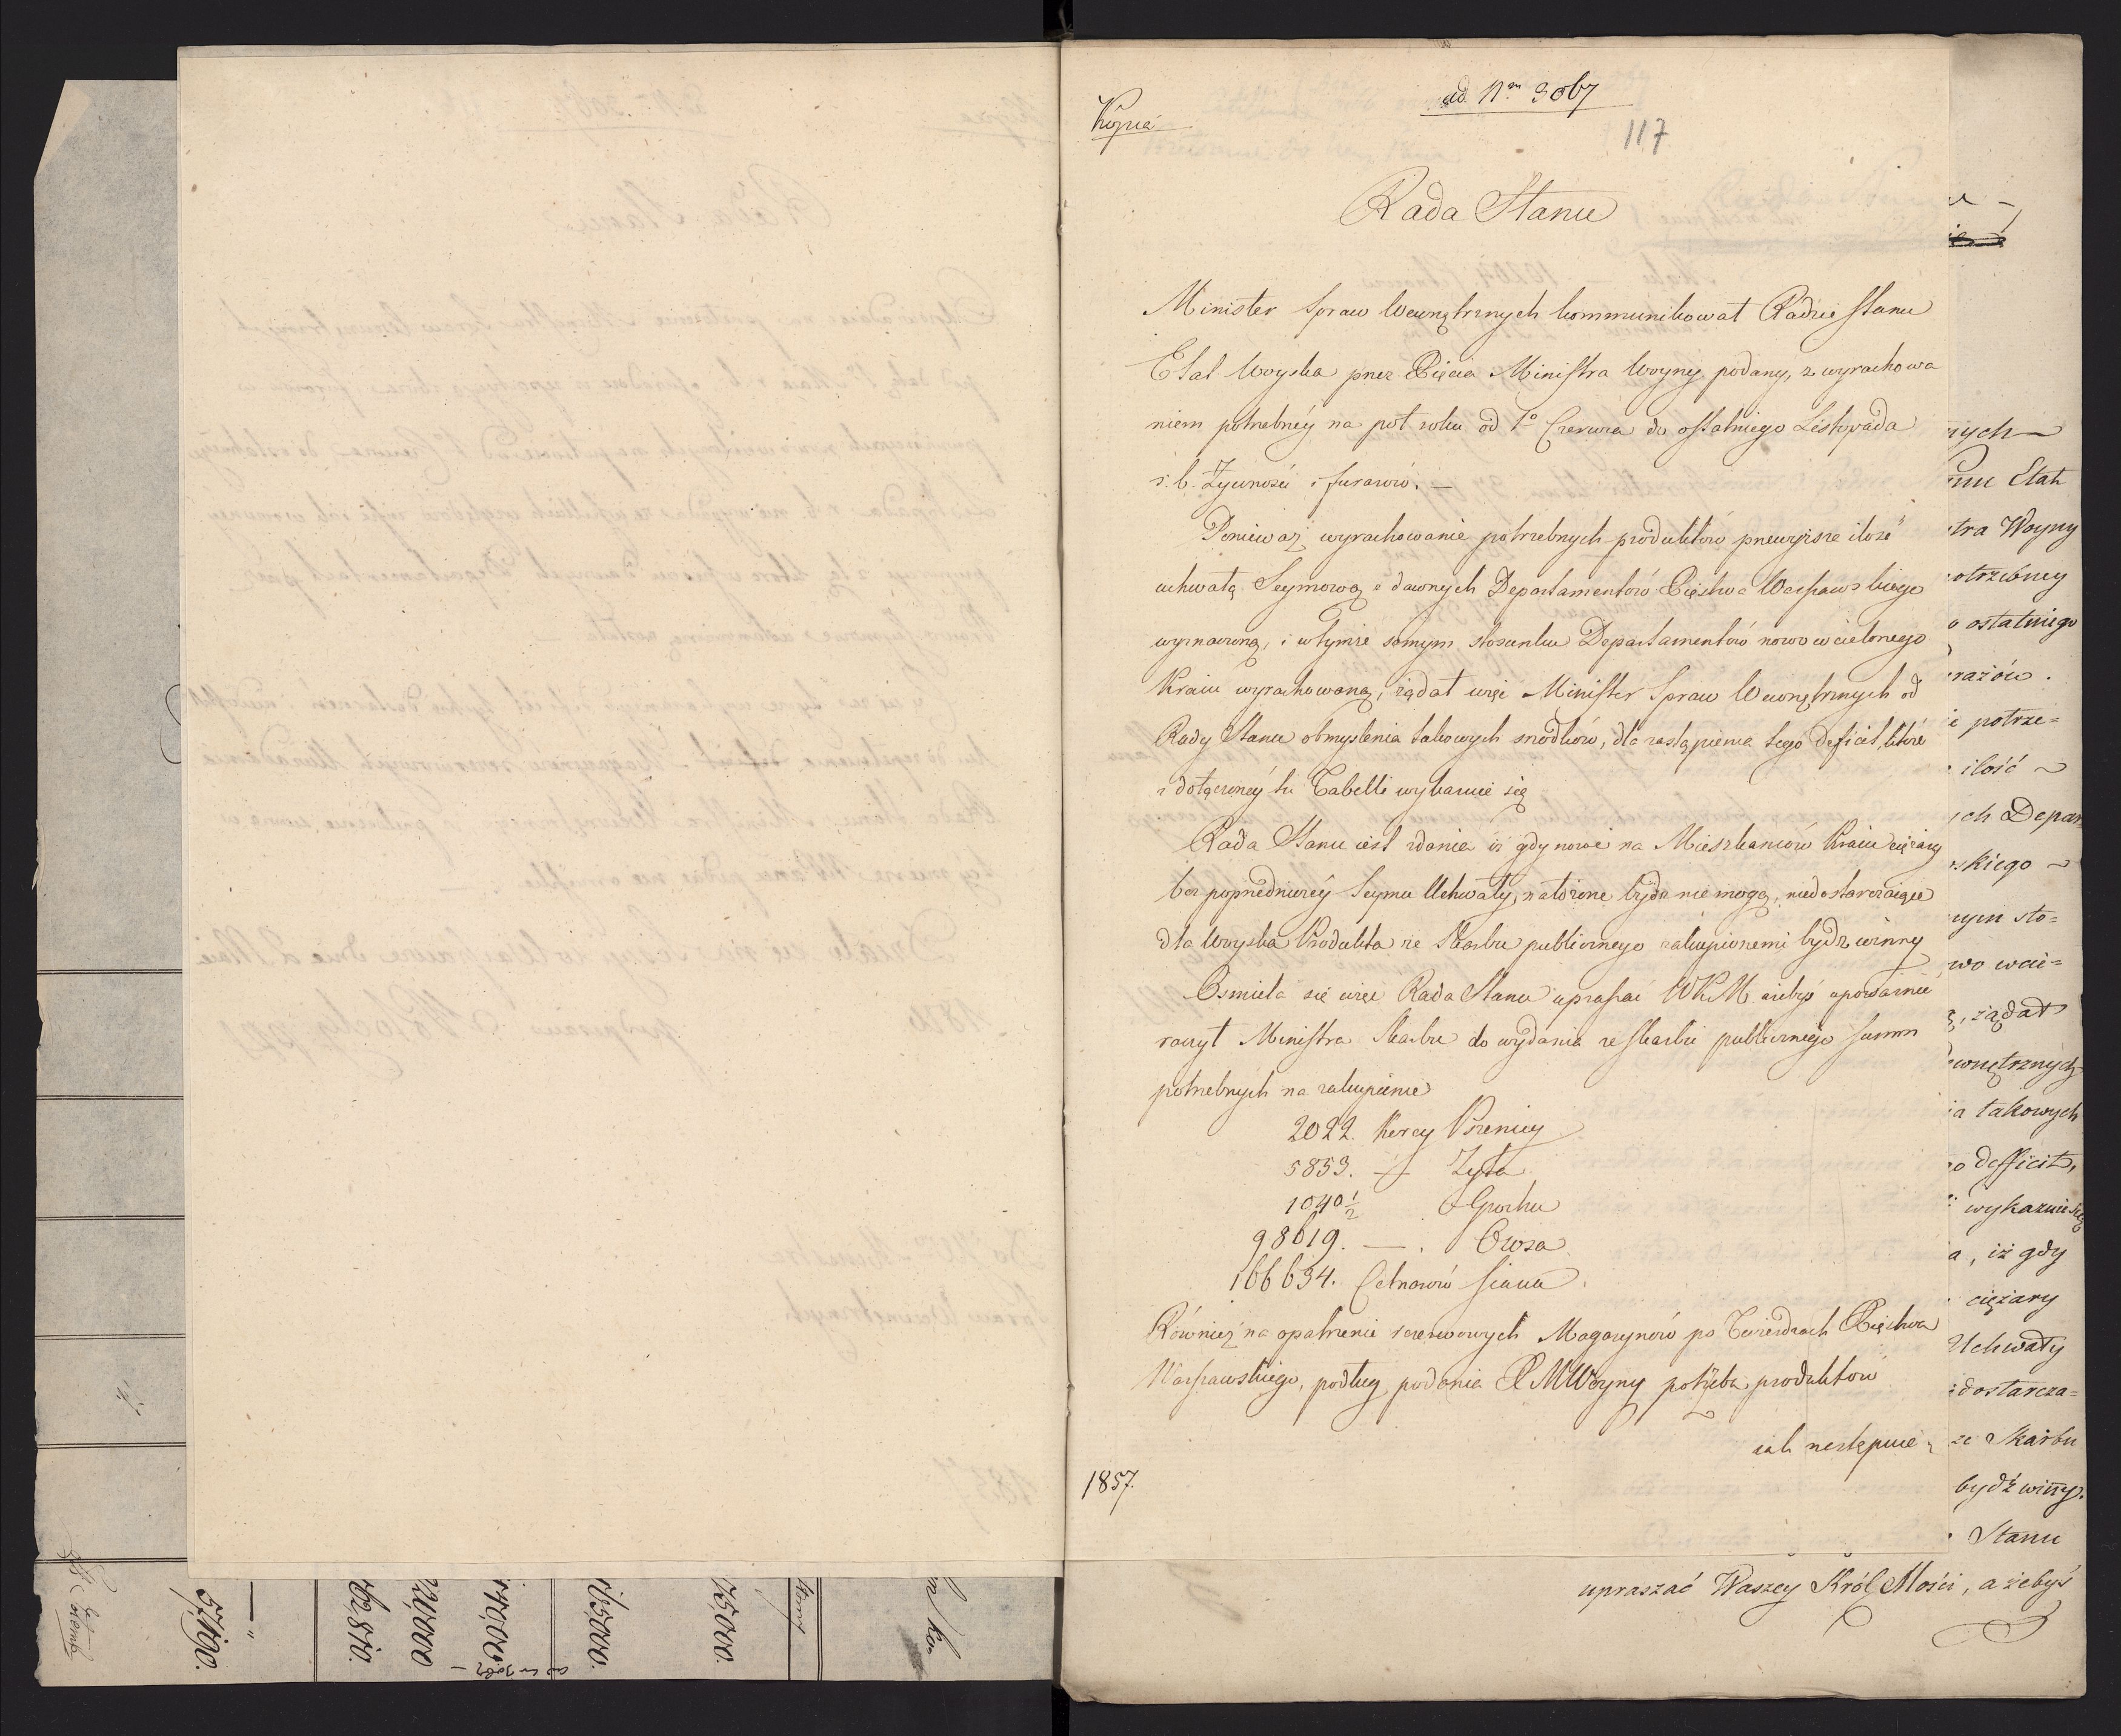 Kopia
ad Nm 3067
117
Rada Stanu
Minister Spraw Wewnętrznych kommunikował Radzie Stanu
Etat Woyska przez Xięcia Ministra Woyny podany, z wyrachowa
niem potrzebnéy na pół roku od 1o Czerwca do ostatniego Listopada
r. b. Żywności i furażów. —
Ponieważ wyrachowanie potrzebnych produktów przewyższe ilość
uchwałą Seymową z dawnych Departamentów Xięstwa Warszawskiego
wyznaczoną, i wtymże samym stosunku Departamentów nowo wcielonego
Kraiu wyrachowaną, żądał więc Minister Spraw Wewnętrznych od
Rady Stanu obmyslenia takowych srodków, dla zastąpienia tego deficit, które
z dołączonéy tu Tabelli wykazuie się
Rada Stanu iest zdania iż gdy nowe na Mieszkańców Kraiu ciężary
bez poprzedniczéy Seymu Uchwały, nałożone bydź nie mogą, niedostarczaiące
dla Woyska Produkta ze Skarbu publicznego zakupionemi bydz winny
Osmiela się więc Rada Stanu upraszać WKM ażebyś upoważnić
raczył Ministra Skarbu do wydania ze skarbu publicznego summ
potrzebnych na zakupienie
2022. Korcy Pszenicy
5853. — Zyta
1040 1/2 Grochu
98619. — . Owsa
166634. Cetnarów siana
Również na opatrzenie rezerwowych Magazynów po Twierdzach Xięstwa
Warszawskiego, podług podania X MWoyny potrzeba produktów
iak następuie
1857.
nych
Etat
tra Woyny
otrzebney
o ostatniego
rażów.
e potrze=
ilość
ch Depar
skiego
nym sto=
wo wcie=
, żądał
ewnętrznych
ia takowych
o defficit,
wykazuie się
a, iż gdy
ciężary
Uchwały
dostarcza=
ze Skarbu
bydź winny.
Stanu
upraszać Waszey Król Mości, ażebyś
57,190.
162,810.
22,000
115,000.
75,000.